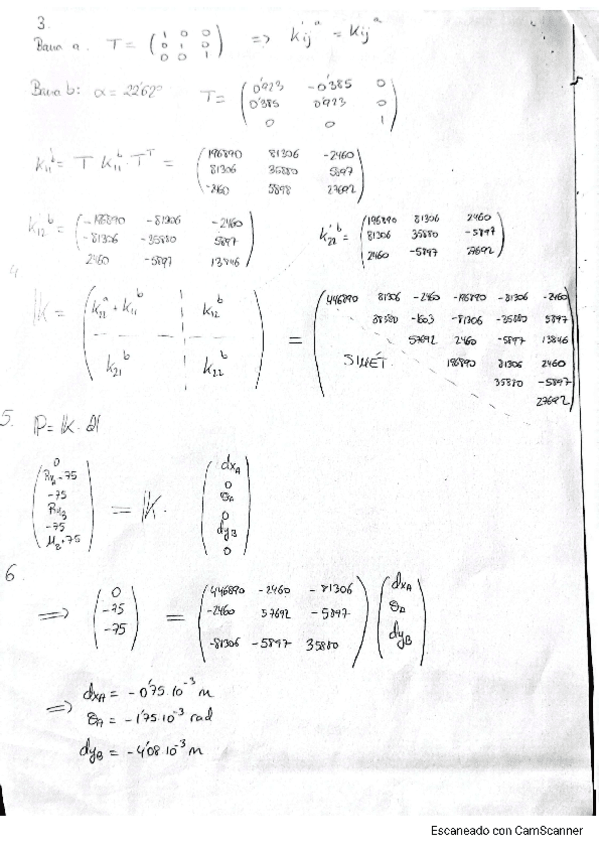 3.
Barra a. T = ( 1 0 0 ; 0 1 0 ; 0 0 1 ) => K'ij^a = Kij^a
Barra b: α = 22'62° T = ( 0'923 -0'385 0 ; 0'385 0'923 0 ; 0 0 1 )
K'11^b = T K11^b · T^T = ( 196890 81306 -2460 ; 81306 35880 5897 ; -2460 5898 27692 )
K'12^b = ( -196890 -81306 -2460 ; -81306 -35880 5897 ; 2460 -5897 13846 ) K'22^b = ( 196890 81306 2460 ; 81306 35880 -5897 ; 2460 -5897 27692 )
4
K = ( K22^a + K11^b K12^b ; K21^b K22^b ) = ( 446890 81306 -2460 -196890 -81306 -2460 ; -81306 -35880 5897 ; 57692 2460 -5897 13846 ; SIMÉT. 196890 81306 2460 ; 35880 -5897 ; 27692 )
5. P = K ·
( 0 ; -75 ; -75 ; -75 ) = K · ( dxA ; 0 ; θA ; 0 ; dyB ; 0 )
6.
=> ( 0 ; -75 ; -75 ) = ( 446890 -2460 -81306 ; -2460 57692 -5897 ; -81306 -5897 35880 ) ( dxA ; θA ; dyB )
=> dxA = -0'75·10^-3 m
θA = -1'75·10^-3 rad
dyB = -4'08·10^-3 m
Escaneado con CamScanner